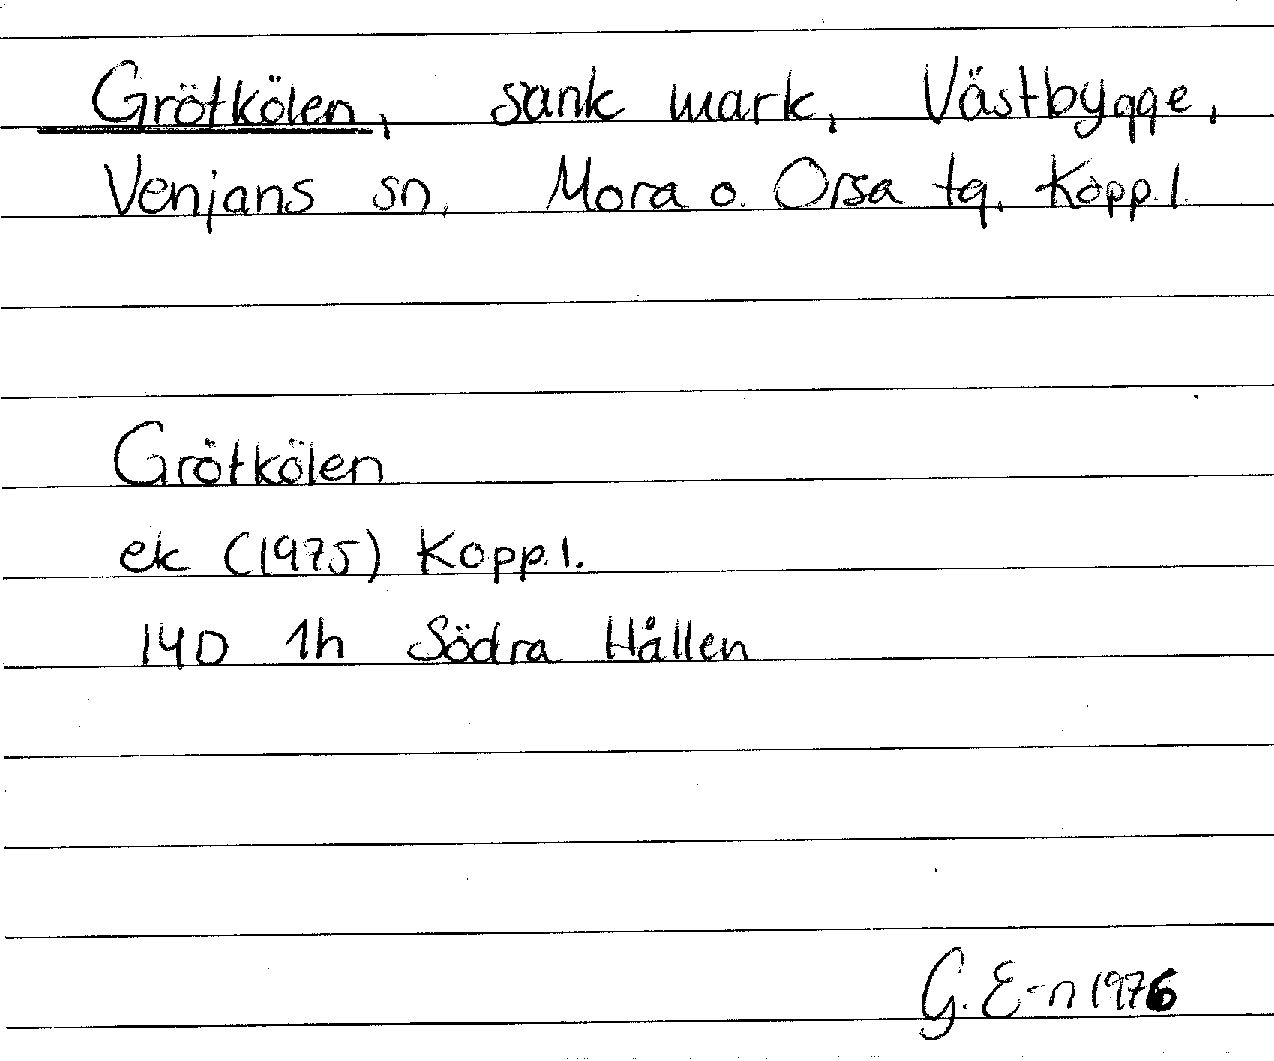 Grötkölen, sank mark, Västbygge,
Venjans sn, Mora o. Orsa tg, Kopp.l.
Grötkölen
ek (1975) Kopp.l.
14D 1h Södra Hållen
G. E-n 1976